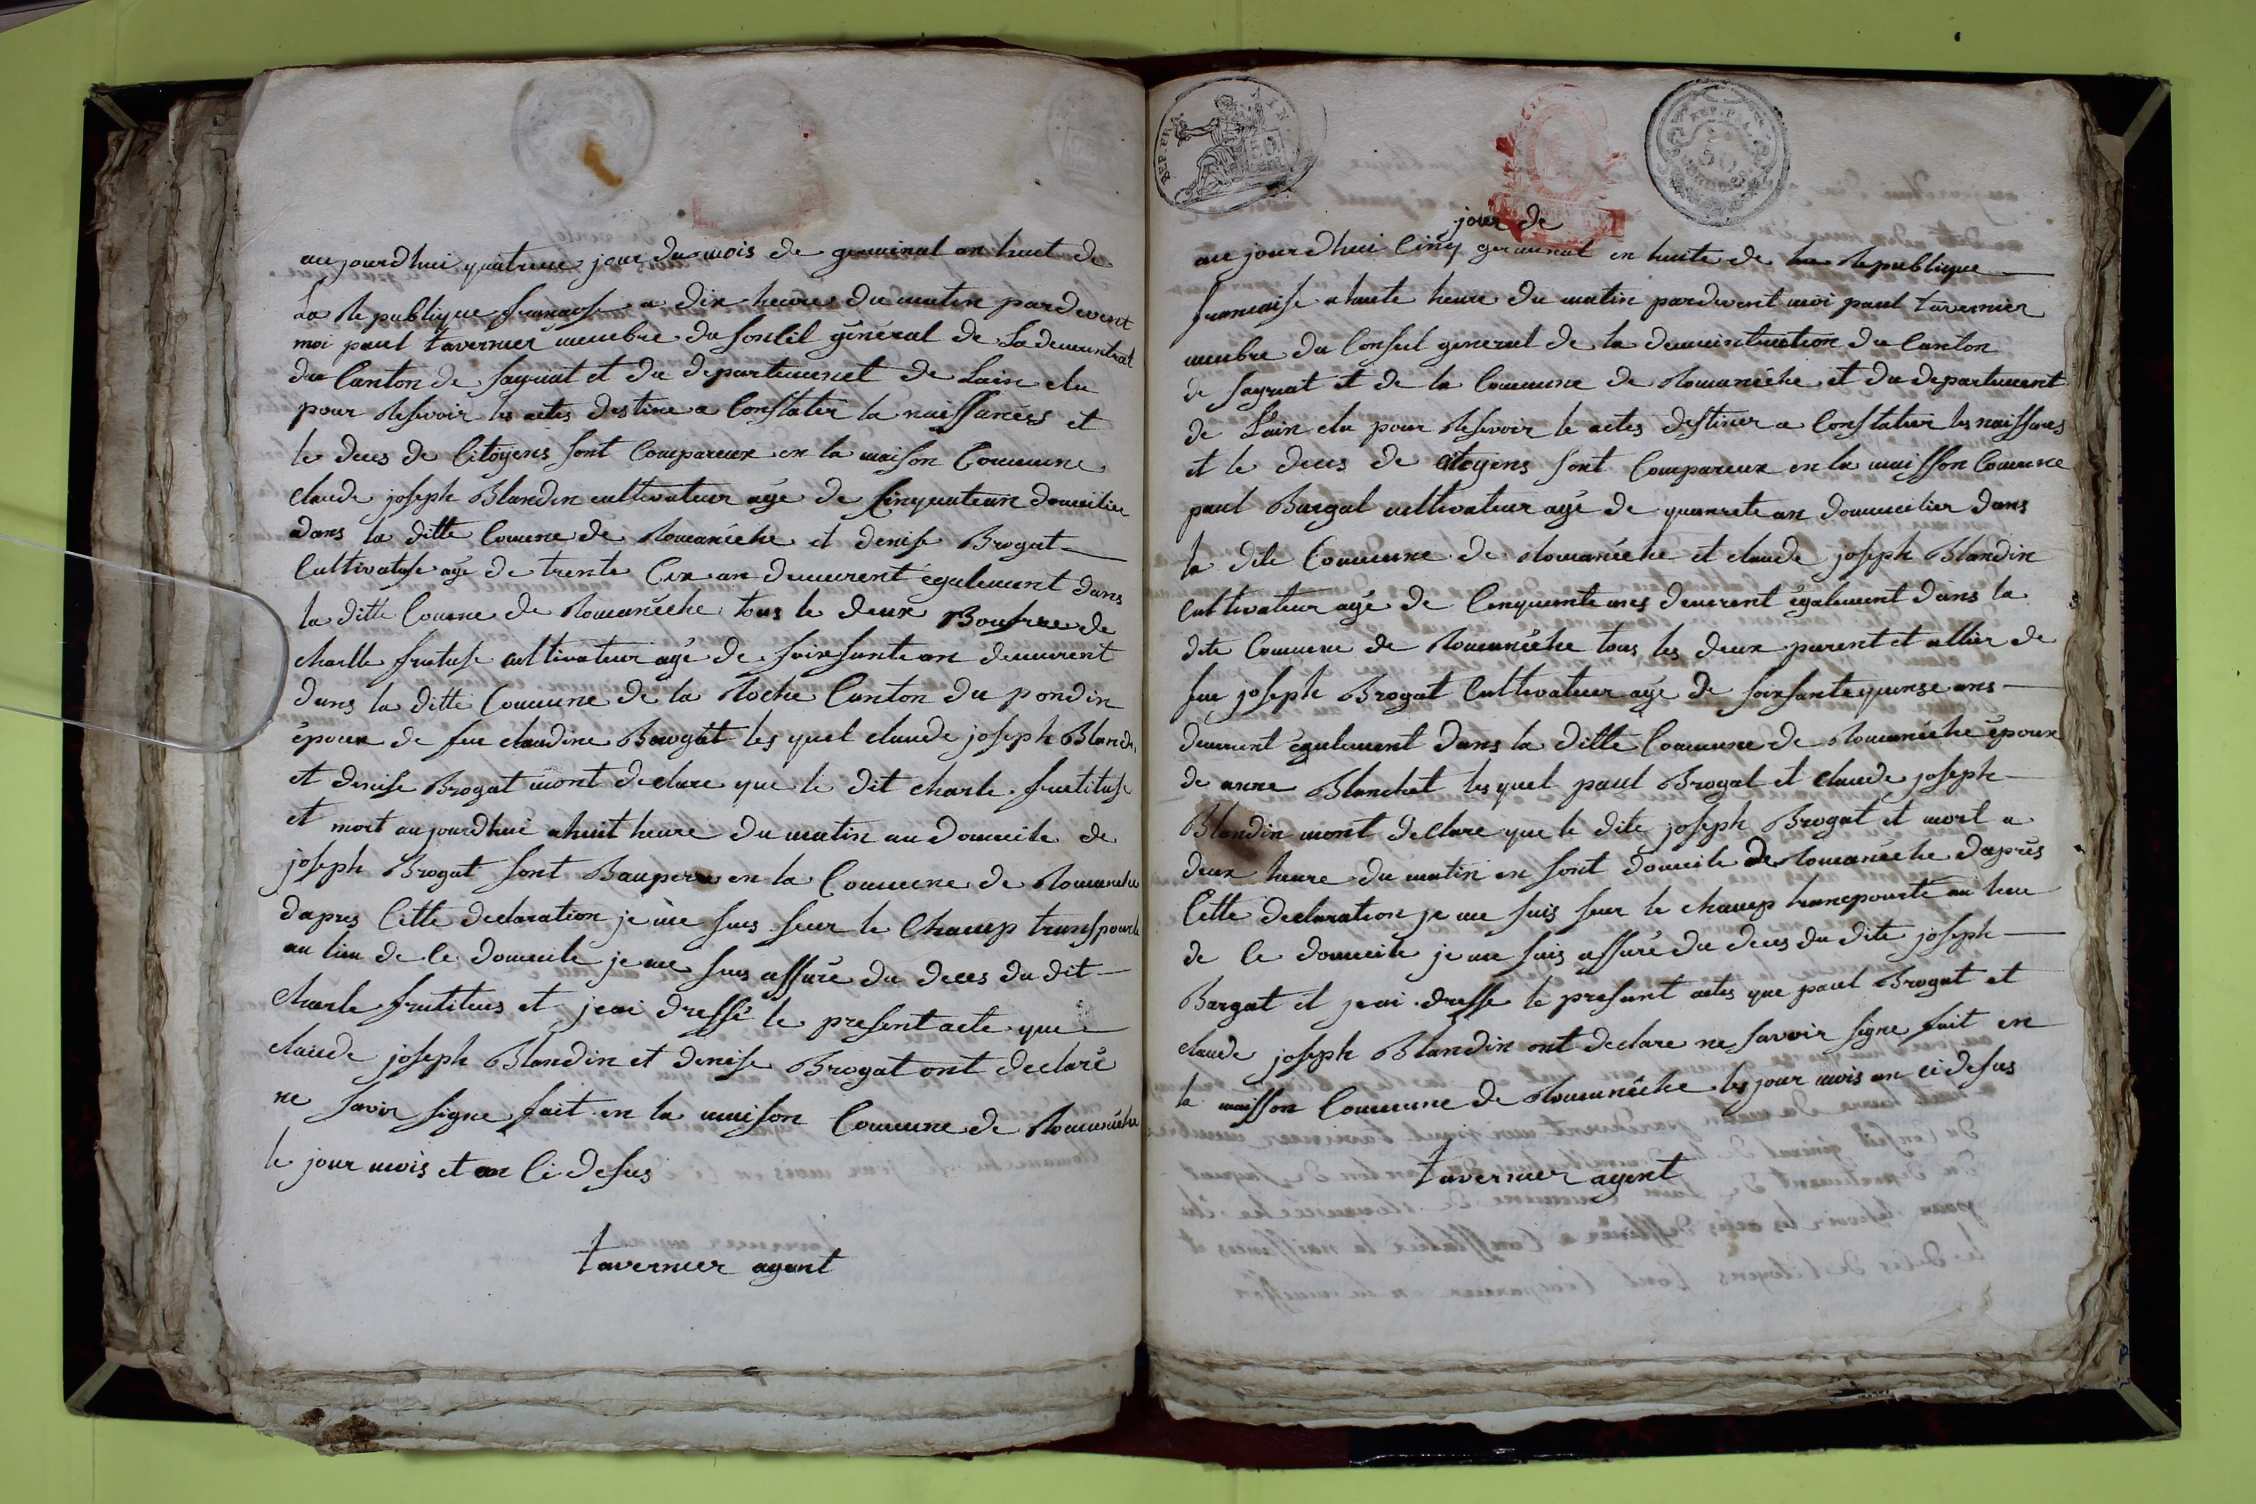 aujourdhui quatrieme jour du mois de germinal an huit de
La Republique francaise a dix heure du matin pardevent
moi paul tavernier membre du Conseil général de Lademinitrat
du Canton de Saynat et du departement de Lain elu
pour Resevoir les actes destine a Constater la naissances et
le deces de Citoyens sont Compareux en la maison Commune
claude joseph Blandin cultivateur agé de Cinquatean domicilier
dans la ditte Comune de Romanéche et denise Brogat
Cultivatrise agé de trente Cix an demeurent également dans
la ditte Comune de Romanéche tous le deux Boufrere de
charlle fretise cultivateur agé de soixsante an demeurent
dans la ditte Commune de la Roche Canton du pondin
époux de feu claudine Brogat les quel claude joseph Blandin
et denise Brogat mont declare que le dit charle
et mort aujourdhui a huit heure du matin au domicile de
joseph Brogat sont Baupere en la Commune de Romaneche
dapres Cette declaration je me suis seur le Champ transpourte
au lieu de Ce domicile je me suis assuré du deces du dit
Charle et jeai dressé le present acte que
claude joseph Blandin et denise Brogat ont declaré
ne savoir signe fait en la maison Commune de Romanéche
le jour mois et an Ci desus
tavernier agent
REP. FRA.
50
jour de
aujourdhui Cinq germinal en huite de la Republique
francaise a huite heure du matin pardevent moi paul tavernier
membre du Conseil general de la deministration du Canton
de Saynat et de la Commune de Romanéche et du departement
de Lain elu pour Resevoir le actes destiner a Constatier les naissances
et le deces de Citoyens sont Compareux en la maisson Comune
paul Bargat cultivateur agé de quanrete an doumicilier dans
la dite Commune de Romanéche et claude joseph Blandin
Cultivateur agé de Cinquente anes demeurent également dans la
dite Commune de Romanéche tous les deux parent et allier de
feu joseph Brogat Cultivateur agé de soixsantequinse ans
demeurent également dans la ditte Commune de Romanéche époux
de anne Blanchet les quel paul Brogat et claude joseph
Blandin mont declare que le dite joseph Brogat et mort a
deux heure du matin en sont domicile de Romanéche daprés
Cette declaration je me suis seur le champ trancpourte au lieu
de Ce domicile je me suis assuré du deces du dite joseph
Bargat et jeai dresse le present actes que paul Brogat et
claude joseph Blandin ont declare ne savoir signe fait en
la maisson Commune de Romanéche les jour mois an ci desus
tavernier agent